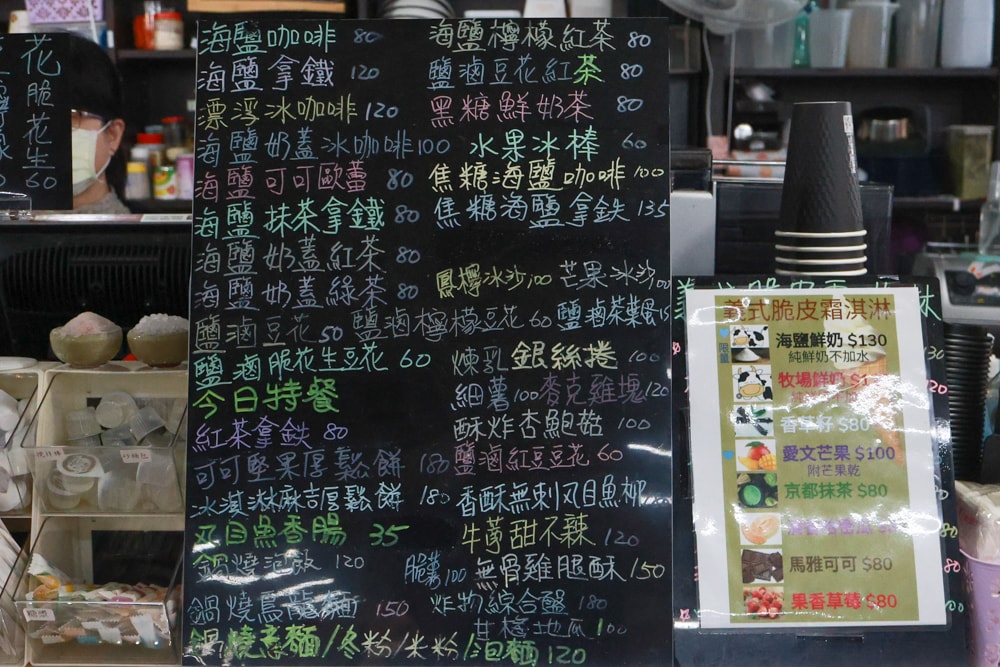 花
脆
花
生
60
海鹽咖啡 80
海鹽拿鐵 120
漂浮冰咖啡 120
海鹽奶蓋冰咖啡 100
海鹽可可歐蕾 80
海鹽抹茶拿鐵 80
海鹽奶蓋紅茶 80
海鹽奶蓋綠茶 80
鹽滷豆花 50 鹽滷檸檬豆花 60 鹽滷茶葉蛋 15
鹽滷脆花生豆花 60
今日特餐
紅茶拿鉄 80
可可堅果厚鬆餅 180
冰淇淋麻吉厚鬆餅 180
虱目魚香腸 35
鍋燒 120
鍋燒烏龍麵 150
鍋燒意麵/冬粉/米粉/泡麵 120
海鹽檸檬紅茶 80
鹽滷豆花紅茶 80
黑糖鮮奶茶 80
水果冰棒 60
焦糖海鹽咖啡 100
焦糖海鹽拿鉄 135
鳳檸冰沙 100 芒果冰沙
煉乳銀絲捲 100
細薯 100 麥克雞塊 120
酥炸杏鮑菇 100
鹽滷紅豆豆花 60
香酥無刺虱目魚柳
牛蒡甜不辣 120
脆薯 100 無骨雞腿酥 150
炸物綜合盤 180
甘梅地瓜 100
義式脆皮霜淇淋
限量
海鹽鮮奶 $130
純鮮奶不加水
牧場鮮奶
香草籽 $80
愛文芒果 $100
附芒果乾
京都抹茶 $80
馬雅可可 $80
果香草莓 $80
糖漿